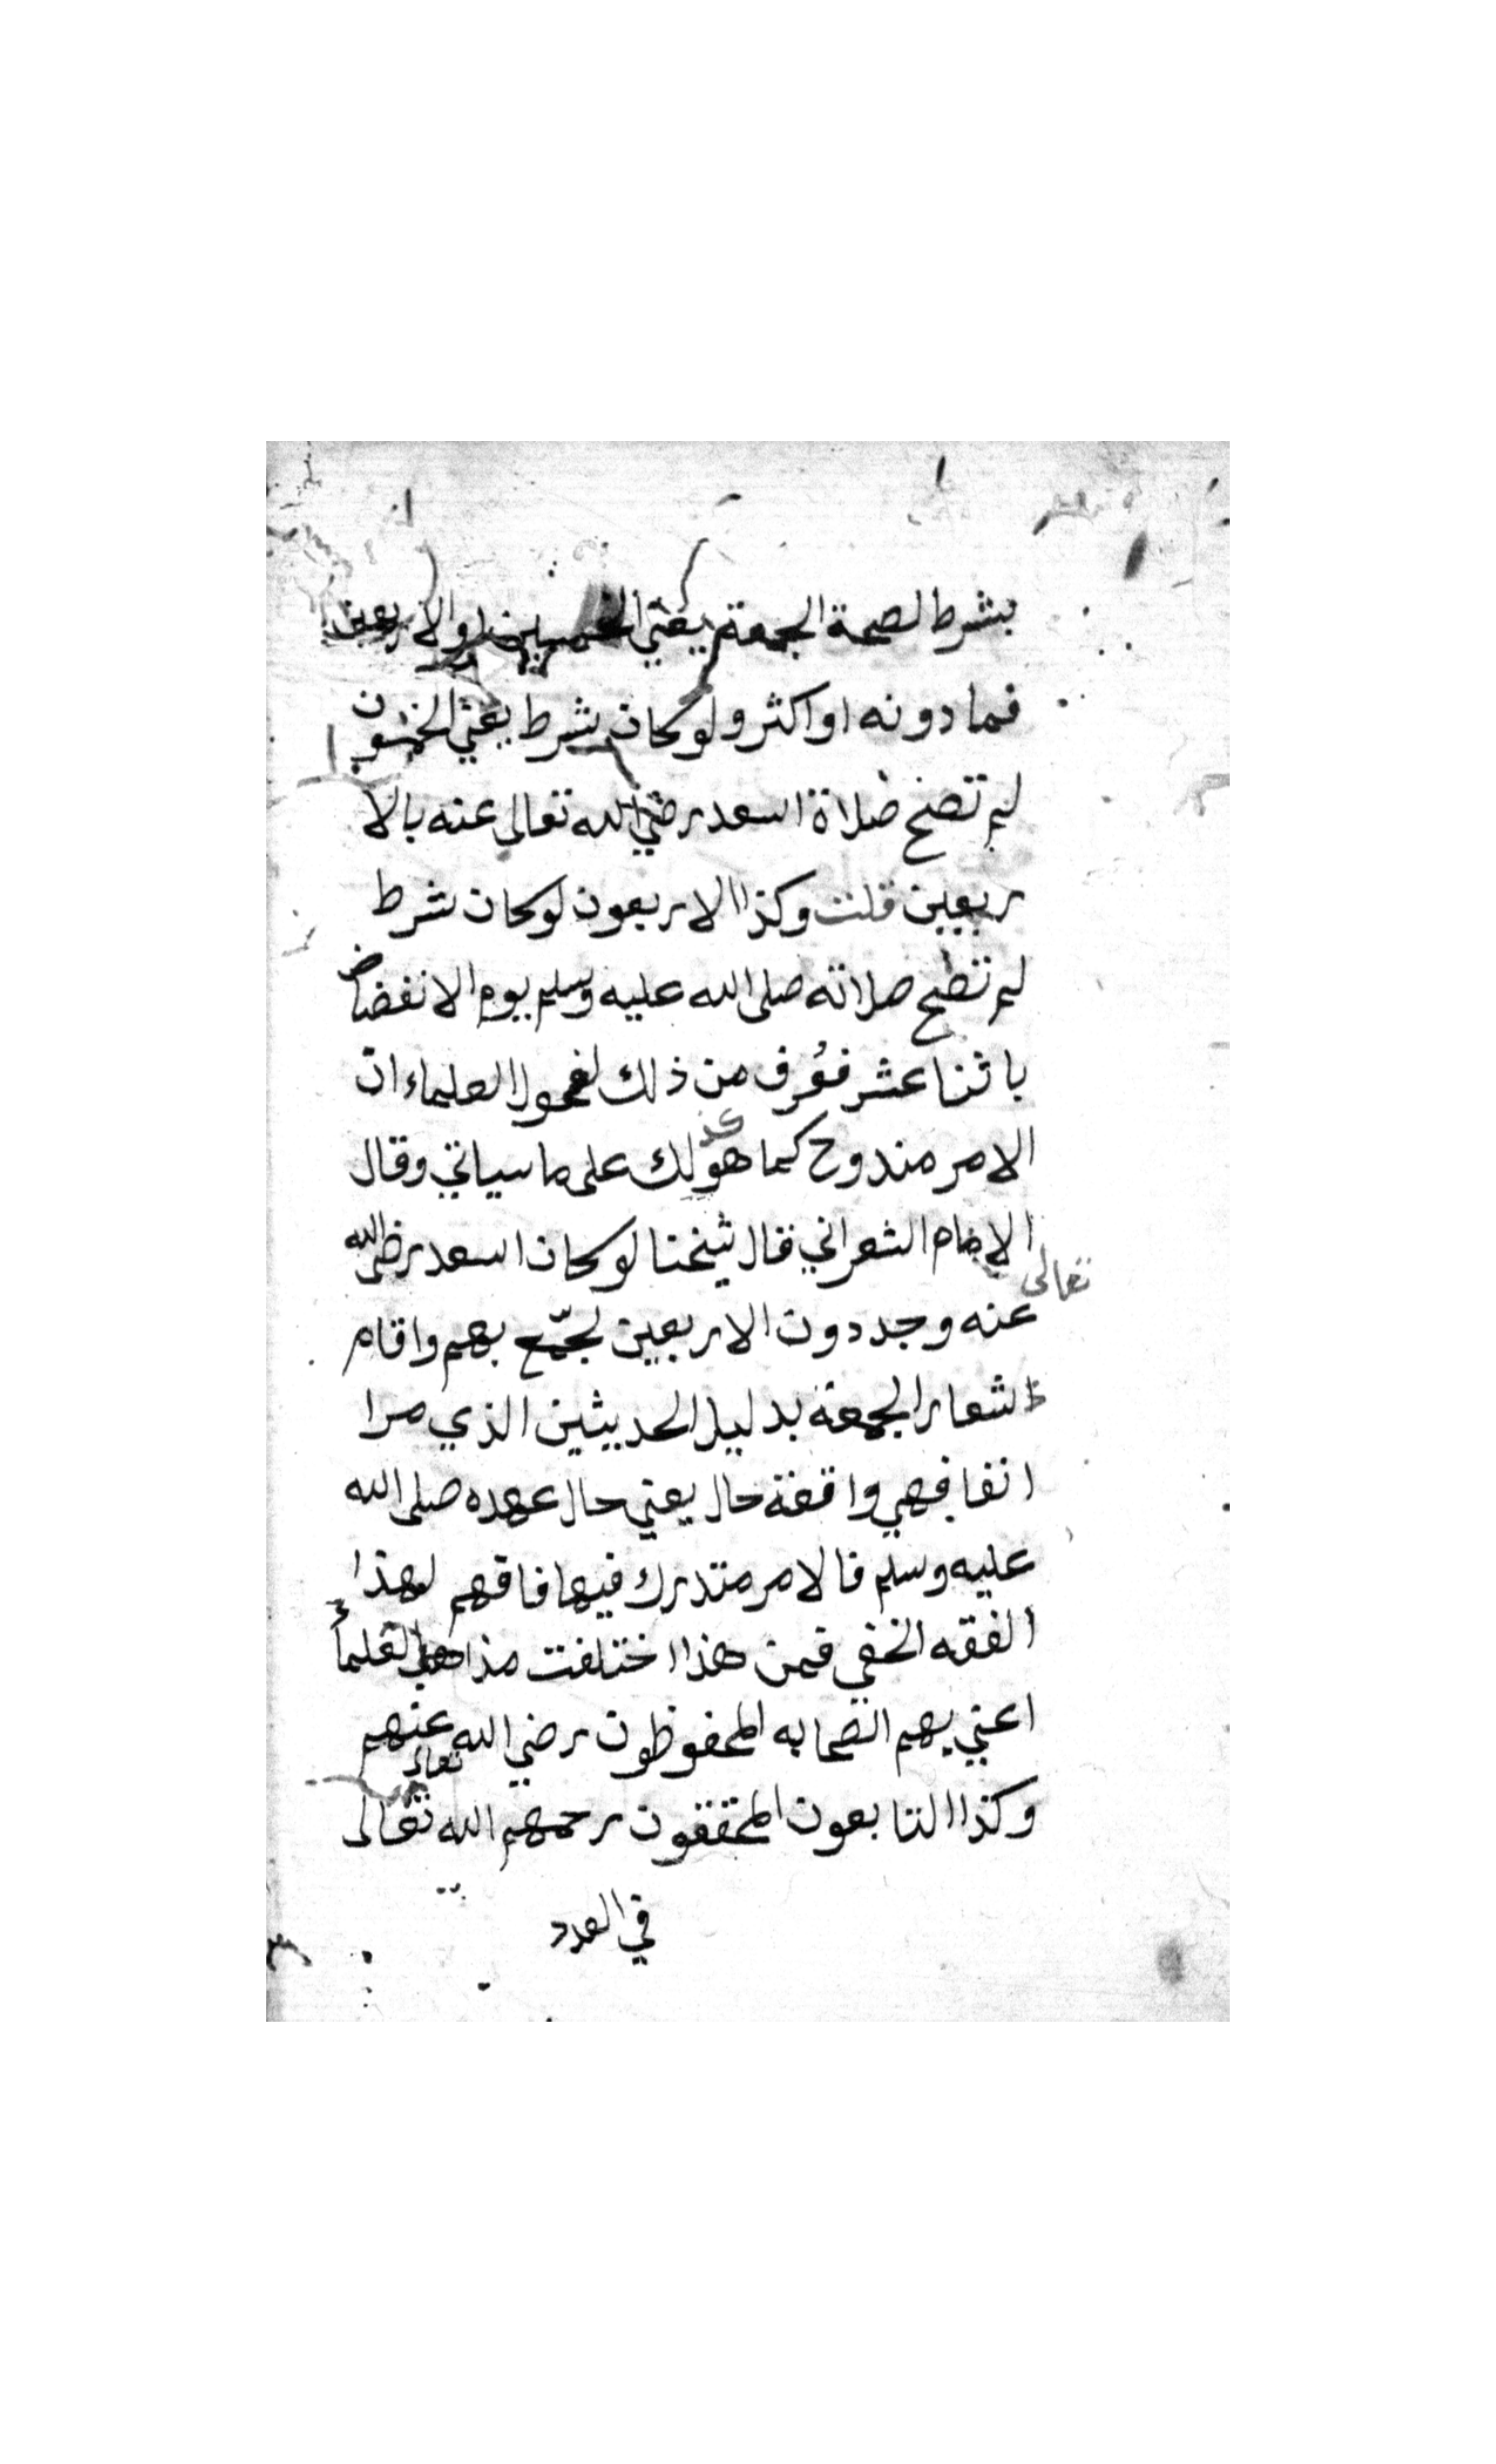 بشرط لصحة الجمعة يعني الخمسين او الاربعين
فما دونه او اكثر ولو كان بشرط يعني الخمسون
لم تصح صلاة اسعد رضي الله تعالى عنه بالا
ربعين قلت وكذا الاربعون لو كان شرط
لم تصح صلاته صلى الله عليه وسلم يوم الانفضاض
باثنا عشر فعُرف من ذلك لفحول العلماء ان
الامر مندوح كما هو لك على ما سياتي وقال
الامام الشعراني قال شيخنا لو كان اسعد رضي الله
تعالى
عنه وجد دون الاربعين لجمّع بهم واقام
الشعار الجمعة بدليل الحديثين الذي مرا
انفا فهي واقعة حال يعني حال عهده صلى الله
عليه وسلم فالامر متدرك فيها فافهم لهذا
الفقه الخفي فمن هذا اختلفت مذاهب العلماء
اعني بهم الصحابه المحفوظون رضي الله عنهم
تعالى
وكذا التابعون المحققون رحمهم الله تعالى
في العدد